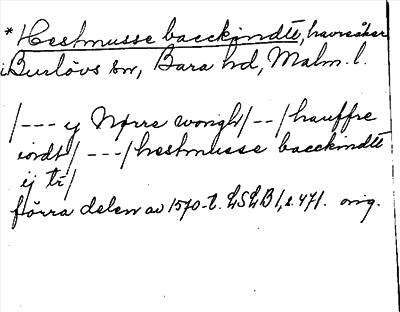 *Hestmusse baeckindtt, havreåker
i Burlövs sn, Bara hd, Malm. l.
/--- ij Nørre wongh/--/hauffre
iordt/ ---/hestmusse baeckindtt
ij tr/
förra delen av 1570-t. LSLB1, s. 471. orig.